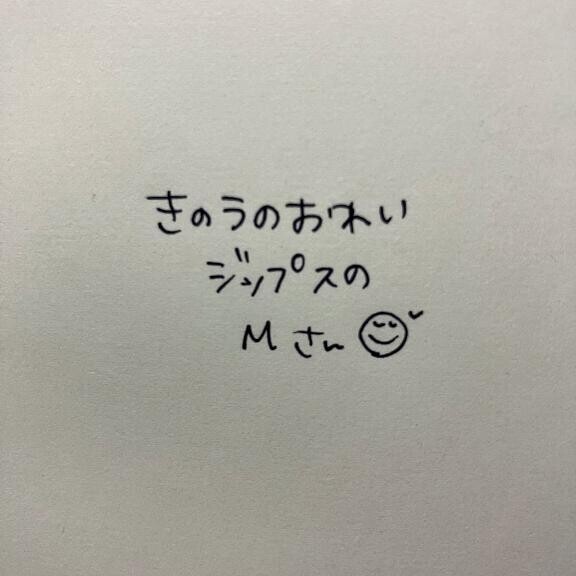 きのうのおわい
ジップスの
Mさん